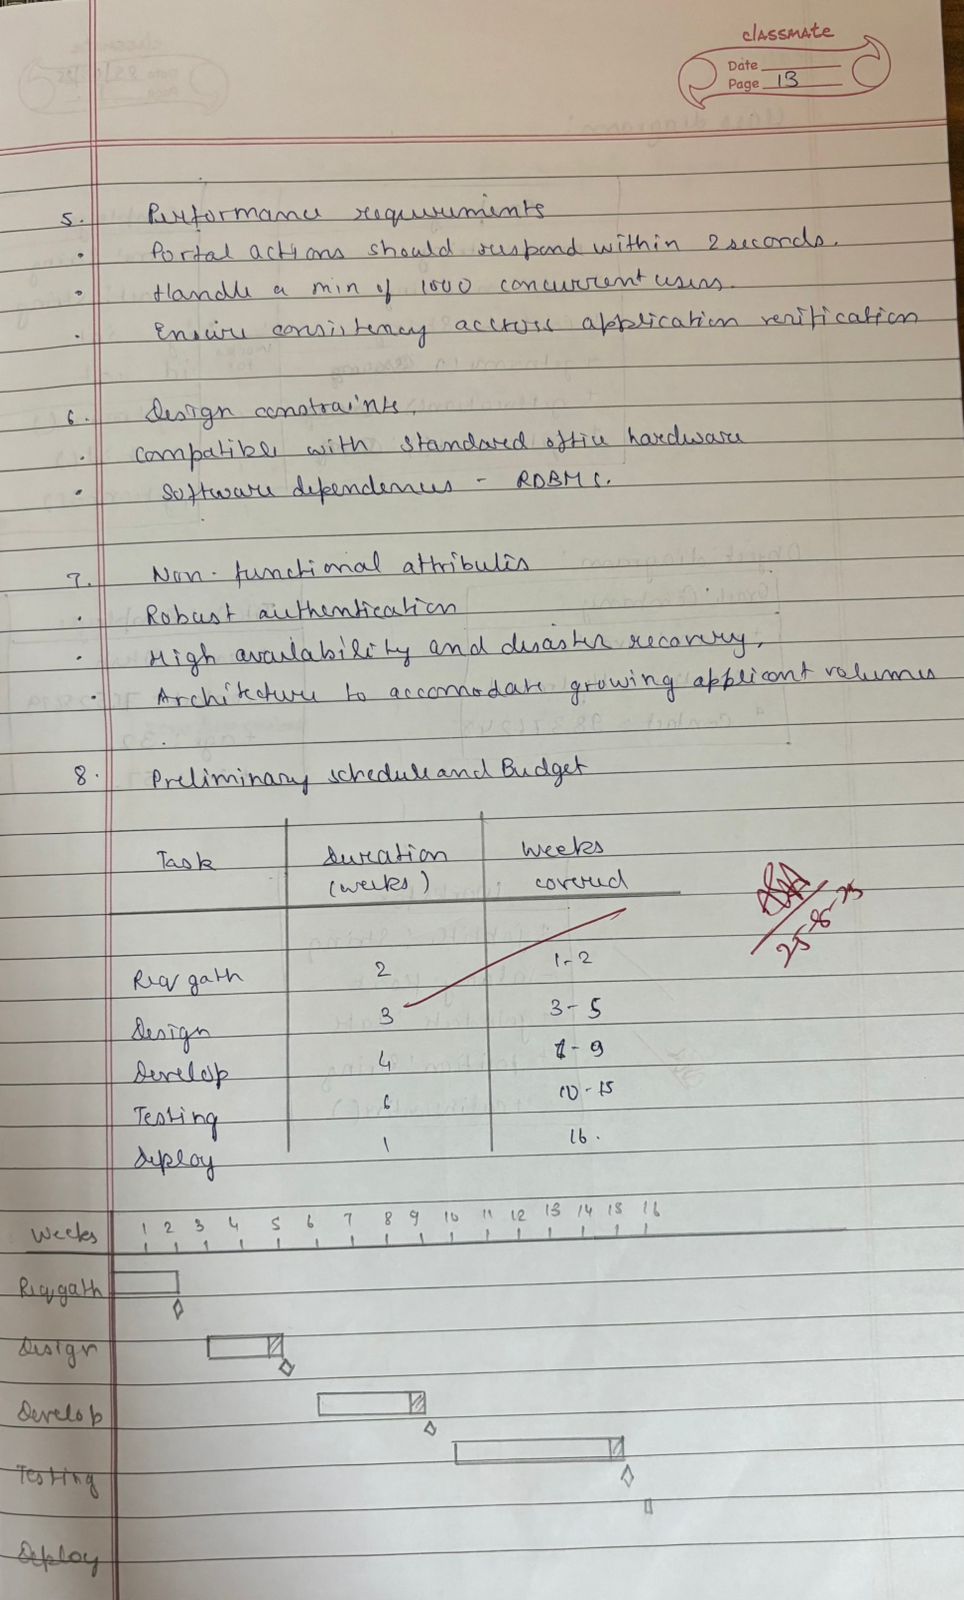 classmate
Date
Page 13
5. Performance requirements
• Portal actions should respond within 2 seconds.
• Handle a min of 1000 concurrent users.
• Ensure consistency accross application verification
6. Design constraints.
• Compatible with standard office hardware
• Software dependencies - RDBMS.
7. Non-functional attributes
• Robust authentication
• High availability and disaster recovery,
• Architecture to accomodate growing applicant volumes
8. Preliminary schedule and Budget
Task Duration (weeks) Weeks covered
Req gath 2 1-2
Design 3 3-5
Develop 4 -9
Testing 6 10-15
Deploy 1 16.
25
Weeks 1 2 3 4 5 6 7 8 9 10 11 12 13 14 15 16
Req gath
Design
Develop
Testing
Deploy